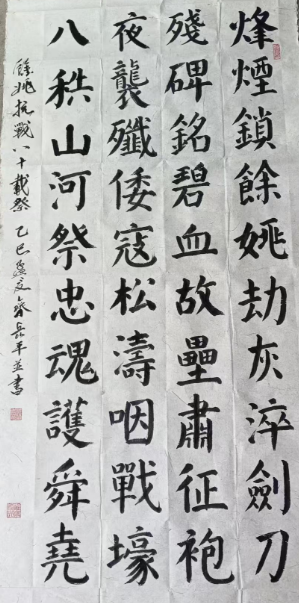 烽煙鎖餘姚劫灰淬劍刀
殘碑銘碧血故壘肅征袍
夜襲殲倭寇松濤咽戰壕
八秩山河祭忠魂護舜堯
餘姚抗戰八十載祭 乙巳 岳平並書